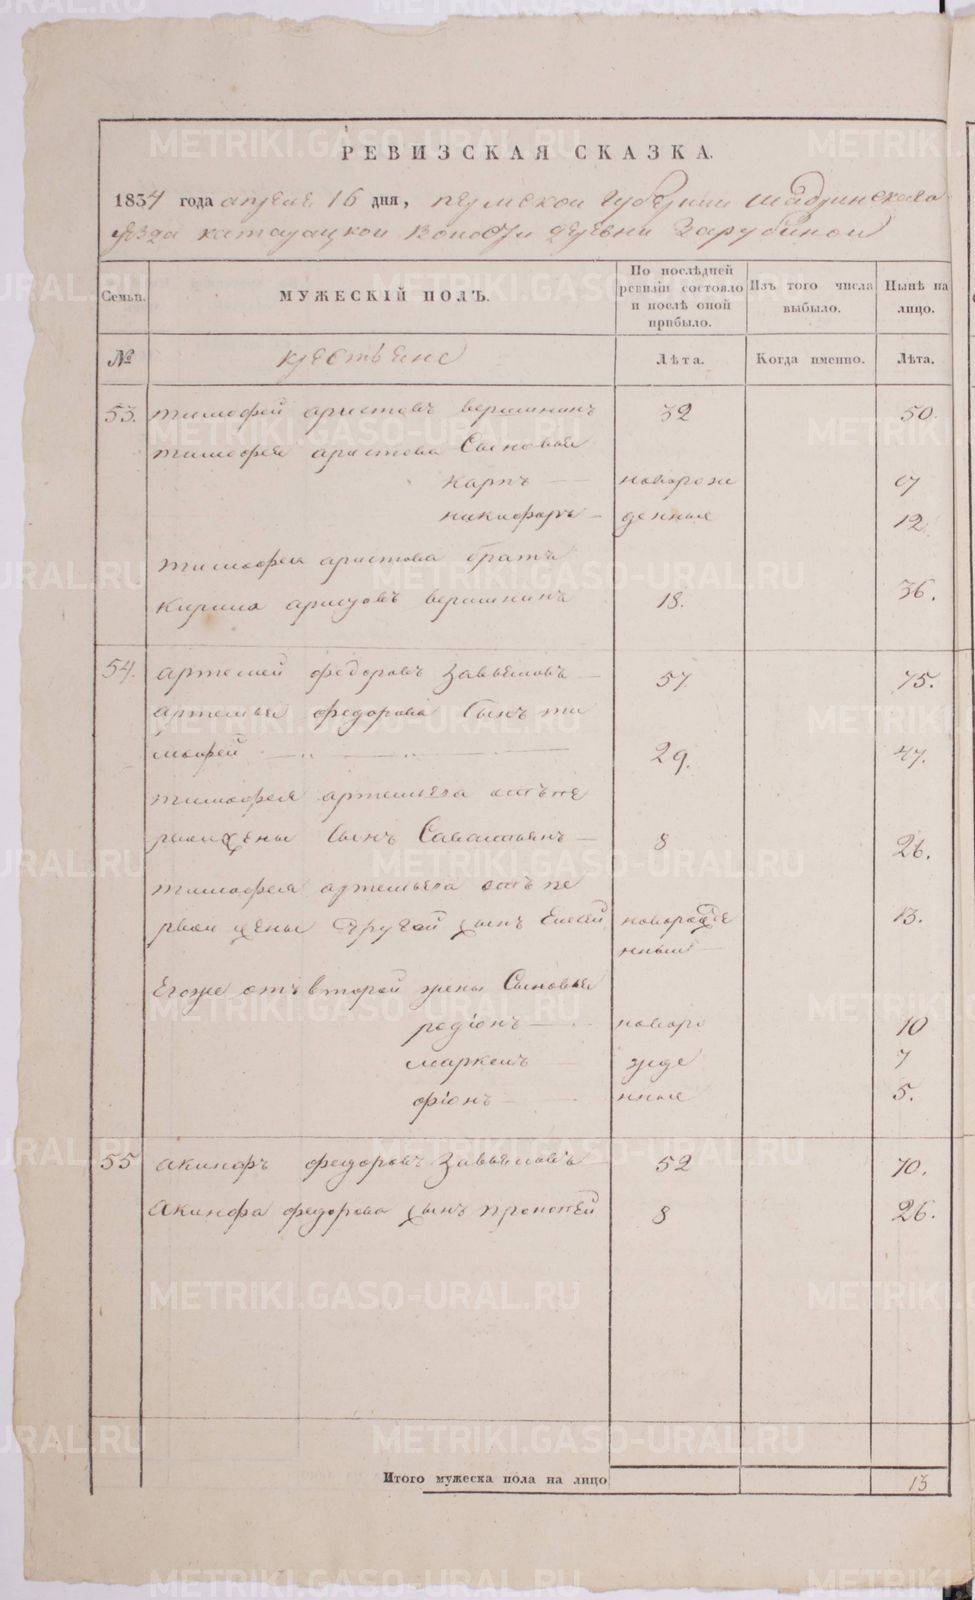 РЕВИЗСКАЯ СКАЗКА.
1834 года апреля 16 дня, пермской губернии шадринскаго
уезда катайацкой волости деревни Зарубиной
Семьи. МУЖЕСКІЙ ПОЛЪ. По послѣдней ревизіи состояло и послѣ оной прибыло. Изъ того числа выбыло. Нынѣ на лицо.
№ крестьяне Лѣта. Когда именно. Лѣта.
53. тимофей аристовъ вершининъ 32 50.
тимофея аристова Сыновья
карпъ новорож 17
никифоръ денные 12
тимофея аристова братъ
Кирила аристовъ вершининъ 18. 36.
54. артемей федоровъ Завьяловъ 57 75.
артемья федорова Сынъ ти
мофей 29. 47.
тимофея артемьева отъ пе
рвой жены Сынъ Савастьянъ 8 26.
тимофея артемьева отъ пе
рвой жены другой сынъ Елисей новорожде 13.
нный
Егоже отъ второй жены Сыновья
родіонъ новоро 10
маркелъ жде 7
фріонъ нные 5.
55 акинфъ федоровъ Завьяловъ 52 70.
Акинфа федорова сынъ прокопей 8 26.
Итого мужеска пола на лицо 13
METRIKI.GASO-URAL.RU